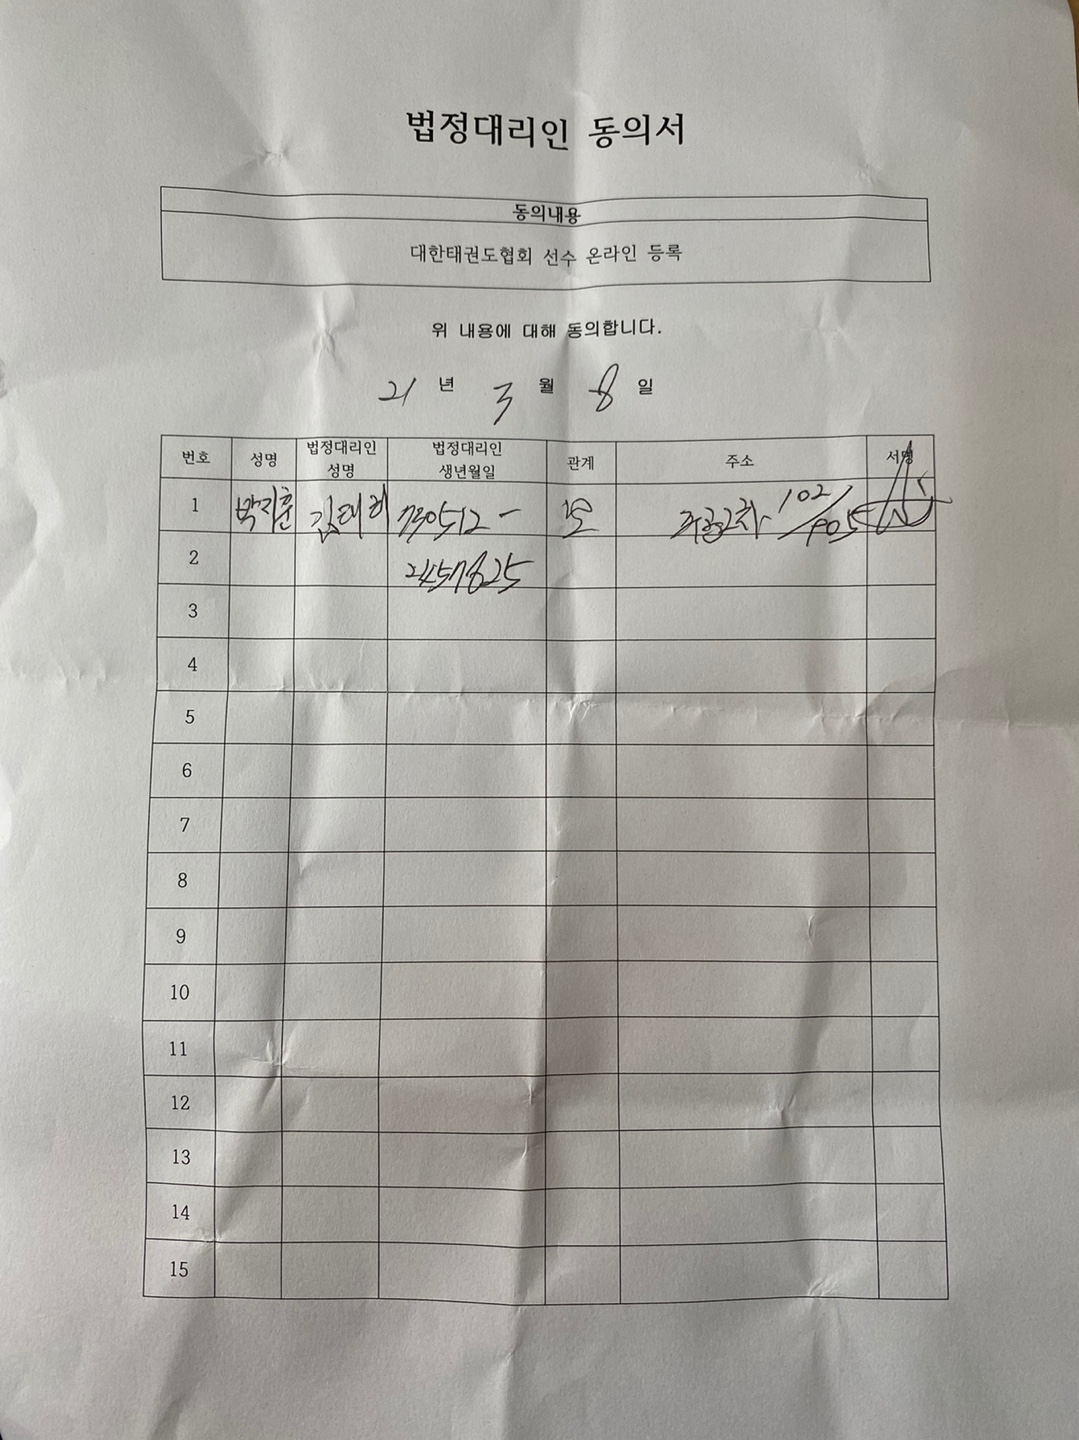 법정대리인 동의서
동의내용
대한태권도협회 선수 온라인 등록
위 내용에 대해 동의합니다.
21 년 3 월 8 일
번호 성명 법정대리인 성명 법정대리인 생년월일 관계 주소 서명
1 박지훈 김태희 730512- 모 주공2차 102/905
2 2457625
3
4
5
6
7
8
9
10
11
12
13
14
15